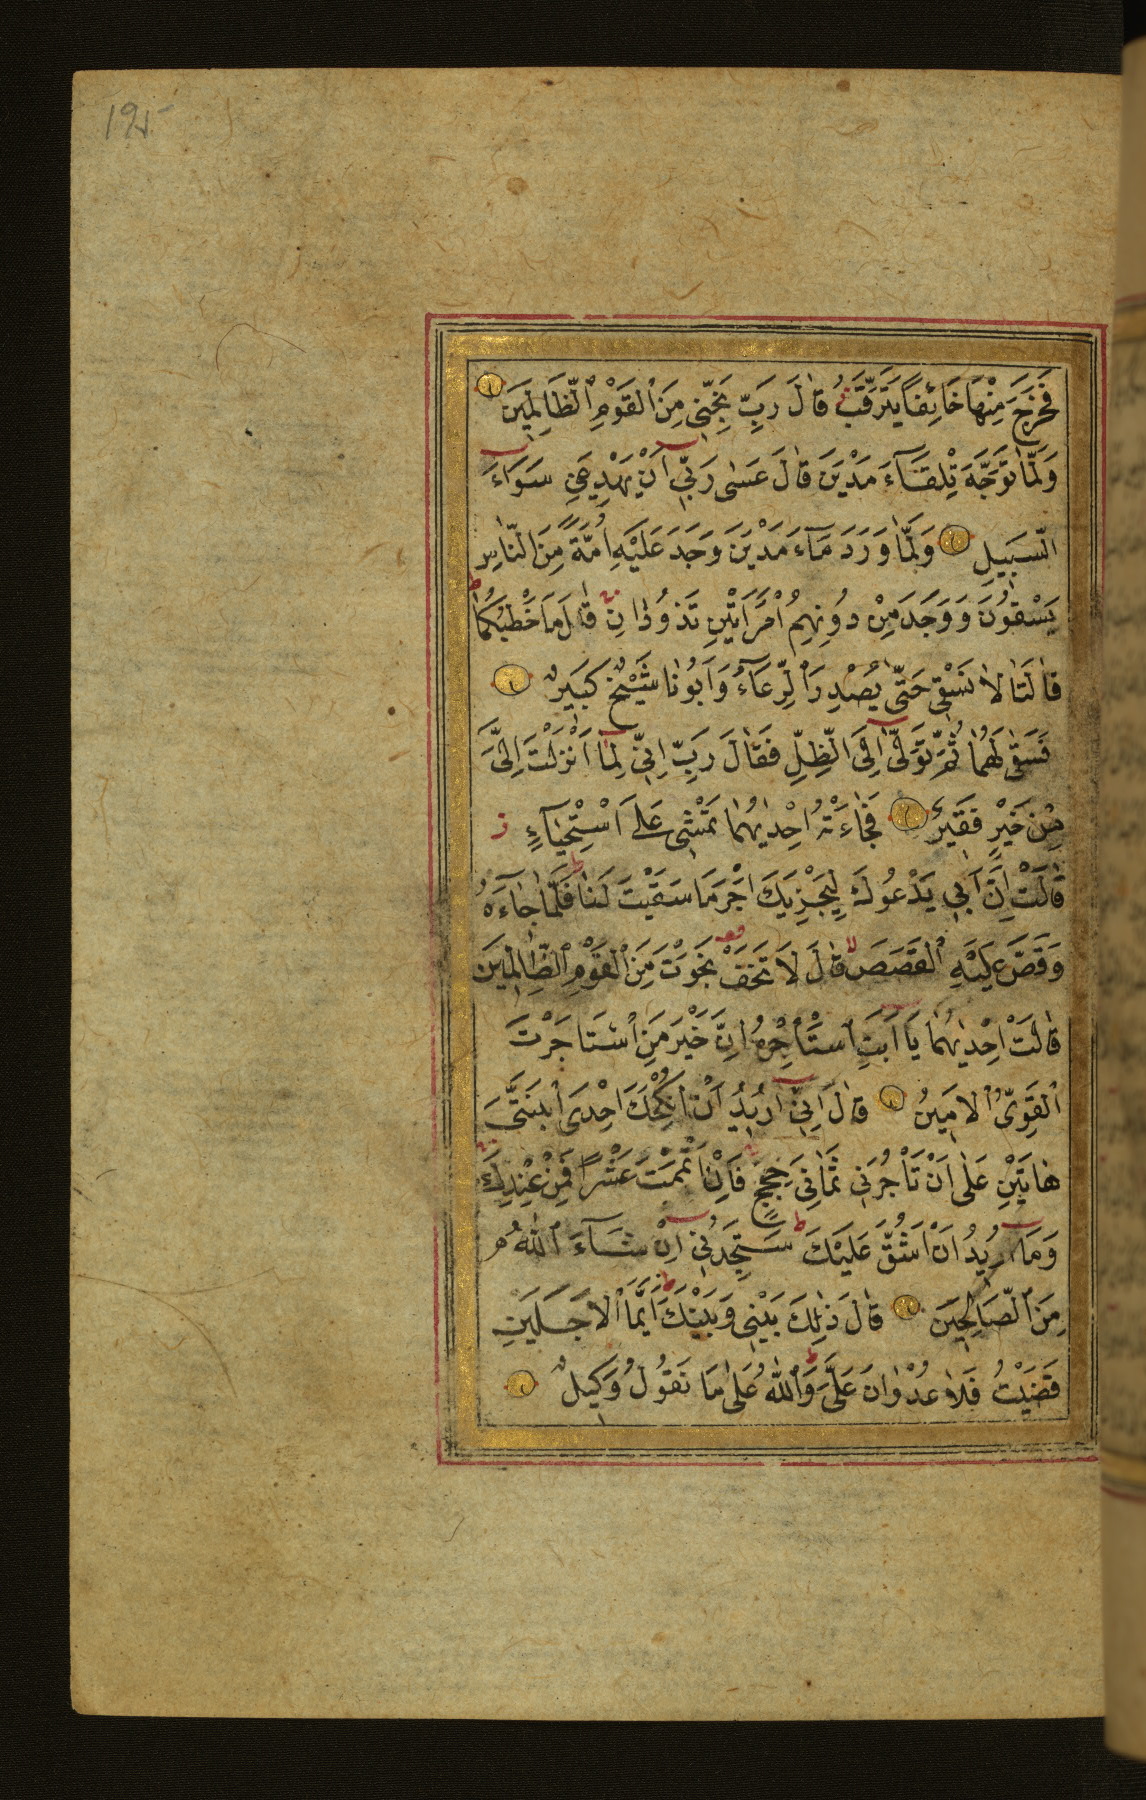 ١٩٥
فَخَرَجَ مِنْهَا خَائِفًا يَتَرَقَّبُ قَالَ رَبِّ نَجِّنِي مِنَ الْقَوْمِ الظَّالِمِينَ
وَلَمَّا تَوَجَّهَ تِلْقَآءَ مَدْيَنَ قَالَ عَسٰى رَبِّي اَنْ يَهْدِيَنِي سَوَآءَ
السَّبِيلِ وَلَمَّا وَرَدَ مَآءَ مَدْيَنَ وَجَدَ عَلَيْهِ اُمَّةً مِنَ النَّاسِ
يَسْقُونَ وَوَجَدَ مِنْ دُونِهِمُ امْرَاَتَيْنِ تَذُودَانِ قَالَ مَا خَطْبُكُمَا
قَالَتَا لَا نَسْقِي حَتّٰى يُصْدِرَ الرِّعَآءُ وَاَبُونَا شَيْخٌ كَبِيرٌ
فَسَقٰى لَهُمَا ثُمَّ تَوَلّٰى اِلَى الظِّلِّ فَقَالَ رَبِّ اِنِّي لِمَا اَنْزَلْتَ اِلَيَّ
مِنْ خَيْرٍ فَقِيرٌ فَجَاءَتْهُ اِحْدٰيهُمَا تَمْشِي عَلَى اسْتِحْيَآءٍ ز
قَالَتْ اِنَّ اَبِي يَدْعُوكَ لِيَجْزِيَكَ اَجْرَ مَا سَقَيْتَ لَنَا ط فَلَمَّا جَآءَهُ
وَقَصَّ عَلَيْهِ الْقَصَصَ لا قَالَ لَا تَخَفْ نَجَوْتَ مِنَ الْقَوْمِ الظَّالِمِينَ
قَالَتْ اِحْدٰيهُمَا يَا اَبَتِ اسْتَاْجِرْهُ اِنَّ خَيْرَ مَنِ اسْتَاجَرْتَ
الْقَوِيُّ الْاَمِينُ قَالَ اِنِّي اُرِيدُ اَنْ اُنْكِحَكَ اِحْدَى ابْنَتَيَّ
هَاتَيْنِ عَلٰى اَنْ تَاْجُرَنِي ثَمَانِيَ حِجَجٍ فَاِنْ اَتْمَمْتَ عَشْرًا فَمِنْ عِنْدِكَ
وَمَا اُرِيدُ اَنْ اَشُقَّ عَلَيْكَ ط سَتَجِدُنِي اِنْ شَآءَ اللّٰهُ
مِنَ الصَّالِحِينَ قَالَ ذٰلِكَ بَيْنِي وَبَيْنَكَ ط اَيَّمَا الْاَجَلَيْنِ
قَضَيْتُ فَلَا عُدْوَانَ عَلَيَّ ط وَاللّٰهُ عَلٰى مَا نَقُولُ وَكِيلٌ